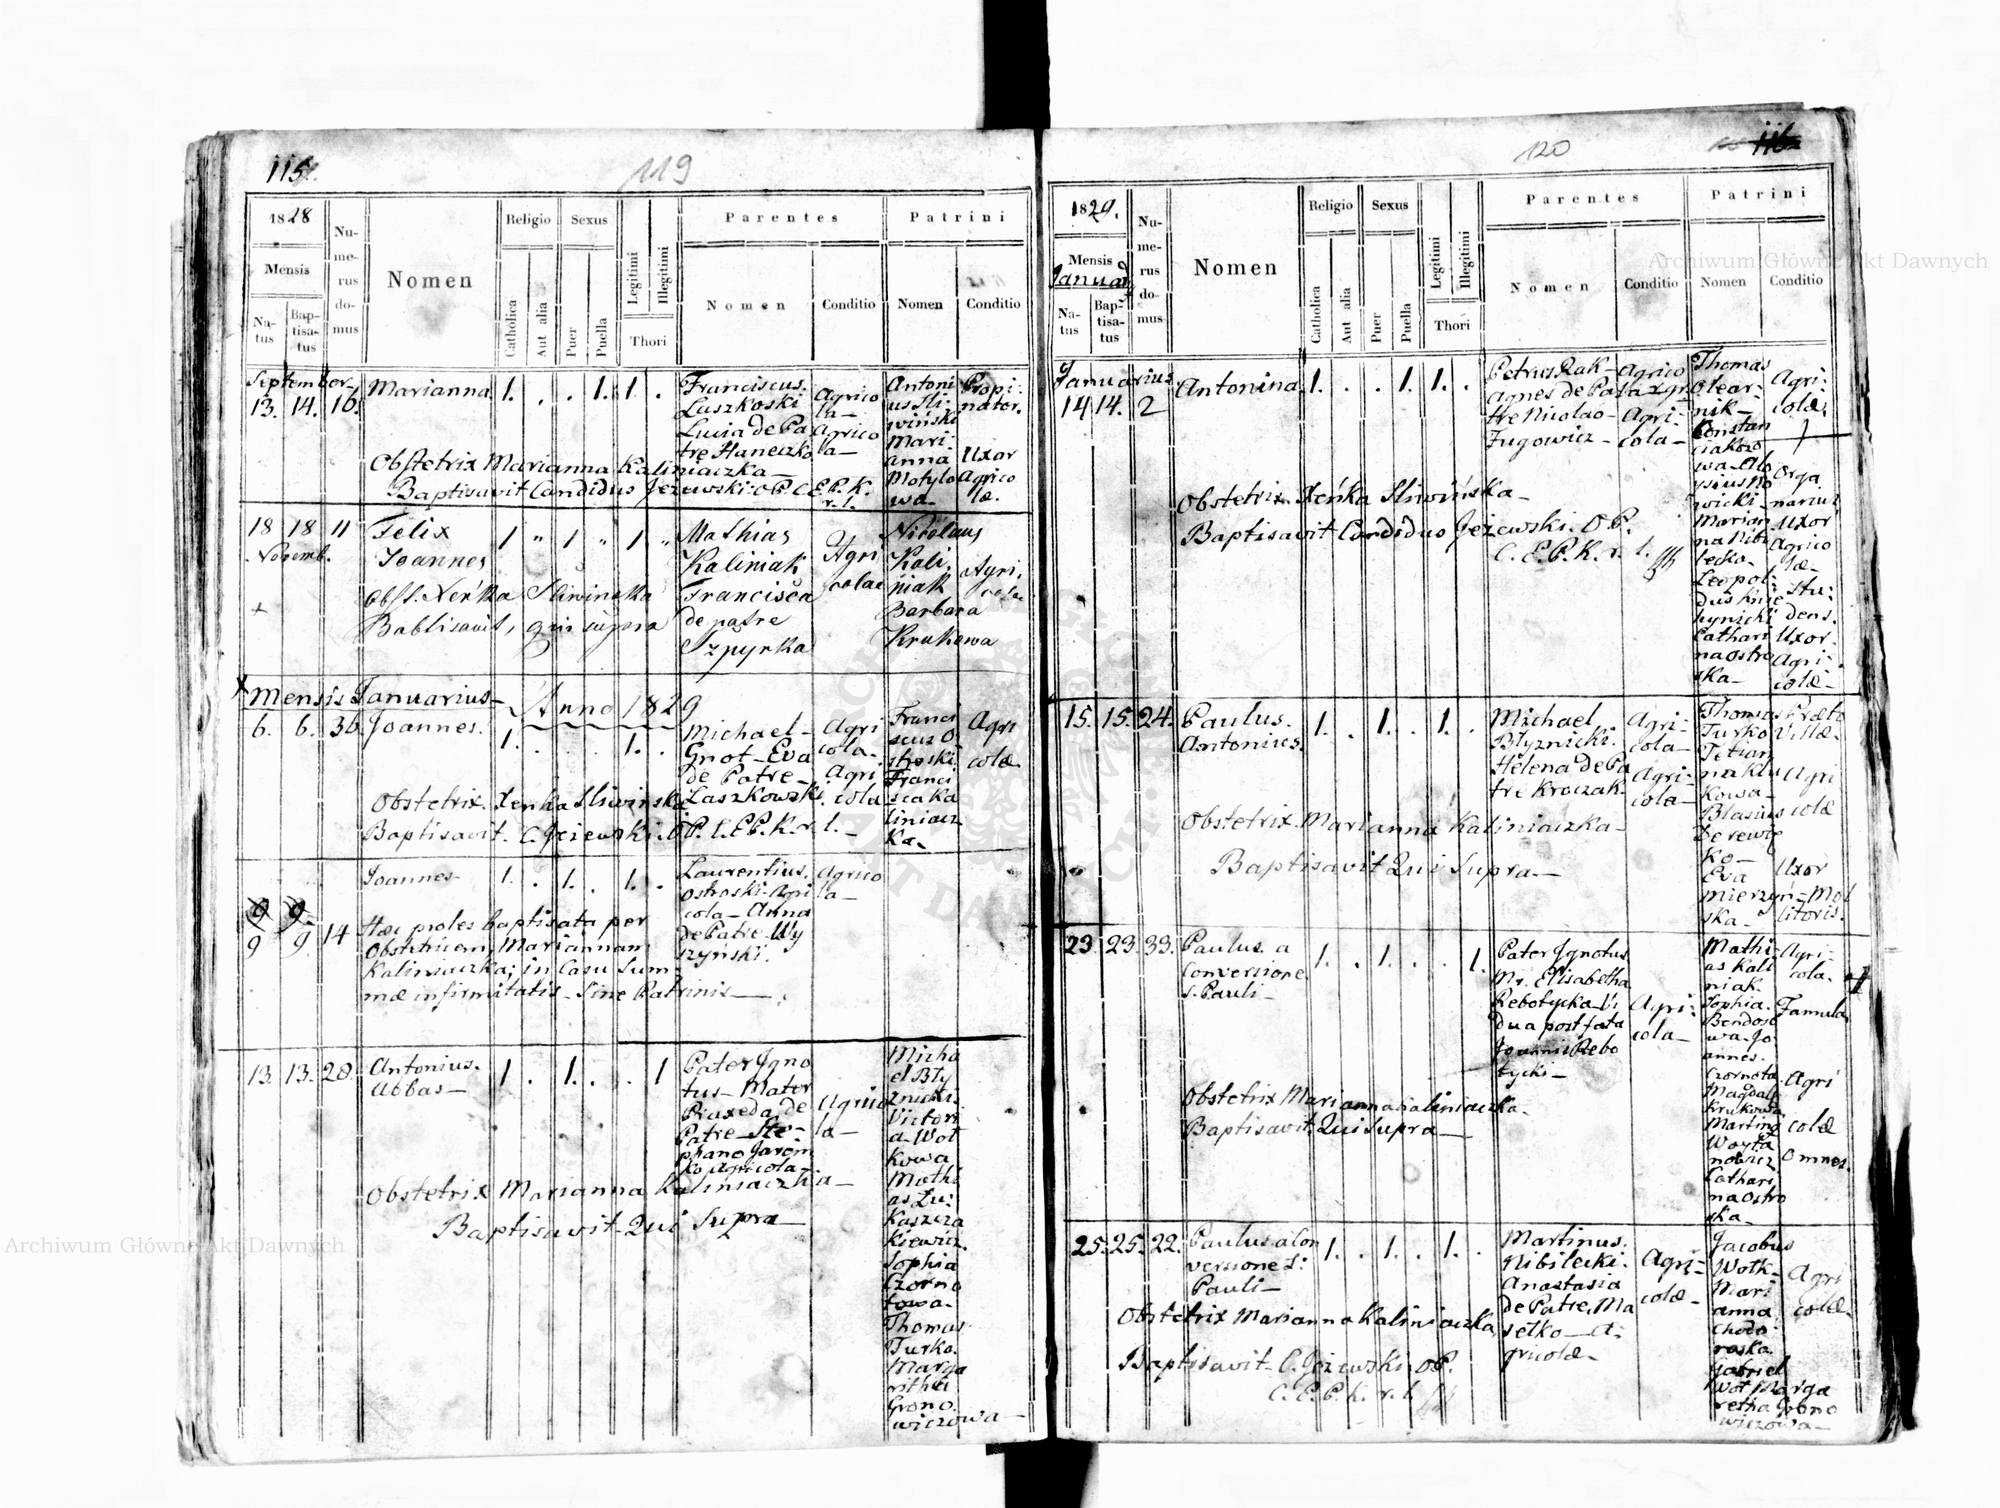 115.
119
1828
Mensis
Na-
tus
Bap-
tisa-
tus
Nu-
me-
rus
do-
mus
Nomen
Religio
Catholica
Aut alia
Sexus
Puer
Puella
Legitimi
Illegitimi
Thori
Parentes
Nomen
Conditio
Patrini
Nomen
Conditio
September
13. 14. 16.
Marianna
1. . . 1. 1 .
Franciscus
Laszkoski
Lucia de Pa
tre Haneczko
Agrico
la-
Agrico
la-
Antoni
us Sli-
wiński
Mari-
anna
Motylo
wa-
Propi-
nator.
Uxor
Agrico
læ.
Obstetrix Marianna Kaliniaczka-
Baptisavit Candidus Jezewski O.P. C.E.P.K.
r. l.
18 18 11
Novemb.
Felix
Joannes
1 " 1 " 1 "
Mathias
Kaliniak
Francisca
de patre
Szpyrka
Agri
colae
Nicolaus
Kali,
niak
Barbara
Krukowa
Agri,
colae
Obst. Xeńka Sliwinska
Babtisavit, qui supra
Mensis Januarius- Anno 1829
6. 6. 36.
Joannes.
1. . . 1. .
Michael-
Gnot-Eva
de Patre-
Laszkowski
Agri
cola-
Agri
cola
Franci
scus O
stroski
Franci
sca Ka
liniacz
ka-
Agri
colæ
Obstetrix. Xenka Sliwinska
Baptisavit- C. Jeżewski. O.P. C.E.P.K. r. l.-
9 9
9 9. 14
Joannes-
1. . 1. . 1. .
Laurentius.
Ostroski-Agri
cola-Anna
de Patre-Wy
szyński.
Agrico
la-
Hæc proles baptisata per
Obstetricem, Mariannam
Kaliniaczka; in Casu Sum
mæ infirmitatis- Sine Patrinis-
13. 13. 28.
Antonius.
Abbas-
1 . 1. . . 1
Pater Igno
tus- Mater
Praxeda de
Patre- Ste-
phano Jarem
ko Agricola-
Agrico
la-
Micha
el Bły
znicki.
Victori
a-Wot
kowa
Mathi
as Łu-
kaszcza
kiewicz.
Sophia
Czorno
towa-
Thomas
Turko.
Marga
ritha
Grono.
wiczowa-
Obstetrix Marianna Kaliniaczka-
Baptisavit- Qui Supra-
120
116
1829.
Mensis
Januarii
Na-
tus
Bap-
tisa-
tus
Nu-
me-
rus
do-
mus
Nomen
Religio
Catholica
Aut alia
Sexus
Puer
Puella
Legitimi
Illegitimi
Thori
Parentes
Nomen
Conditio
Patrini
Nomen
Conditio
Januarius
14 14. 2
Antonina
1. . . 1. 1. .
Petrus Rak-
Agnes de Pa
tre Nicolao-
Fugowicz-
Agrico
Agri-
cola-
Thomas
Olear-
nik-
Constan
ciakoro
wa-Alo
ysius No
wicki-
Marian
na Nibi
lecka-
Leopol-
dus
Cathari
na Ostro
ska-
Agri-
colæ.
Orga
narius
Uxor
Agrico
læ-
Stu-
dens.
Uxor-
Agri-
colæ-
Obstetrix. Xeńka Sliwińska-
Baptisavit Candidus Jeżewski. O.P.
C. E.P.K. r. l.
15. 15. 24.
Paulus.
Antonius.
1. . 1. . 1. .
Michael
Błyznicki.
Helena de Pa
tre Kroczak-
Agri-
cola-
Agri-
cola-
Thomas
Turko
Tetian
na Klu
kowa-
Blasius
Derewię
ko-
Eva
Mierzyń-
ska-
Præfo
Villæ.
Agri
colæ
Uxor
Mol
litoris.
Obstetrix. Marianna Kaliniaczka-
Baptisavit Qui Supra-
23. 23. 33.
Paulus. a
Conversione
S. Pauli-
1. . 1. . . 1.
Pater Ignotus
Mr. Elisabetha
Rebotycka-Vi
dua post fata
Joannis Rebo
tycki-
Agri-
cola-
Mathi-
as Kali
niak
Sophia.
Bendos
wa-Jo
annes.
Czornota
Magdale
Krukowa
Martino
Woyta
nowicz
Cathari
na Ostro
ska-
Agri-
cola.
Famula
Agri
colæ
Omnes.
Obstetrix Marianna Kaliniaczka-
Baptisavit. Qui Supra-
25. 25. 22.
Paulus a Con
versione S:
Pauli-
1. . 1. . 1. .
Martinus.
Nibilecki.
Anastasia
de Patre, Ma
selko-A-
gricolæ-
Agri-
colæ-
Jacobus
Wotk-
Mari
anna
Chodo
roska
Gabriel
Wot Marga
retha Grono
wiczowa-
Agri
colæ-
Obstetrix Marianna Kaliniaczka
Baptisavit- C. Jeżewski. O.P.
C.E.P.K. r. l.
Archiwum Główne Akt Dawnych
Archiwum Główne Akt Dawnych